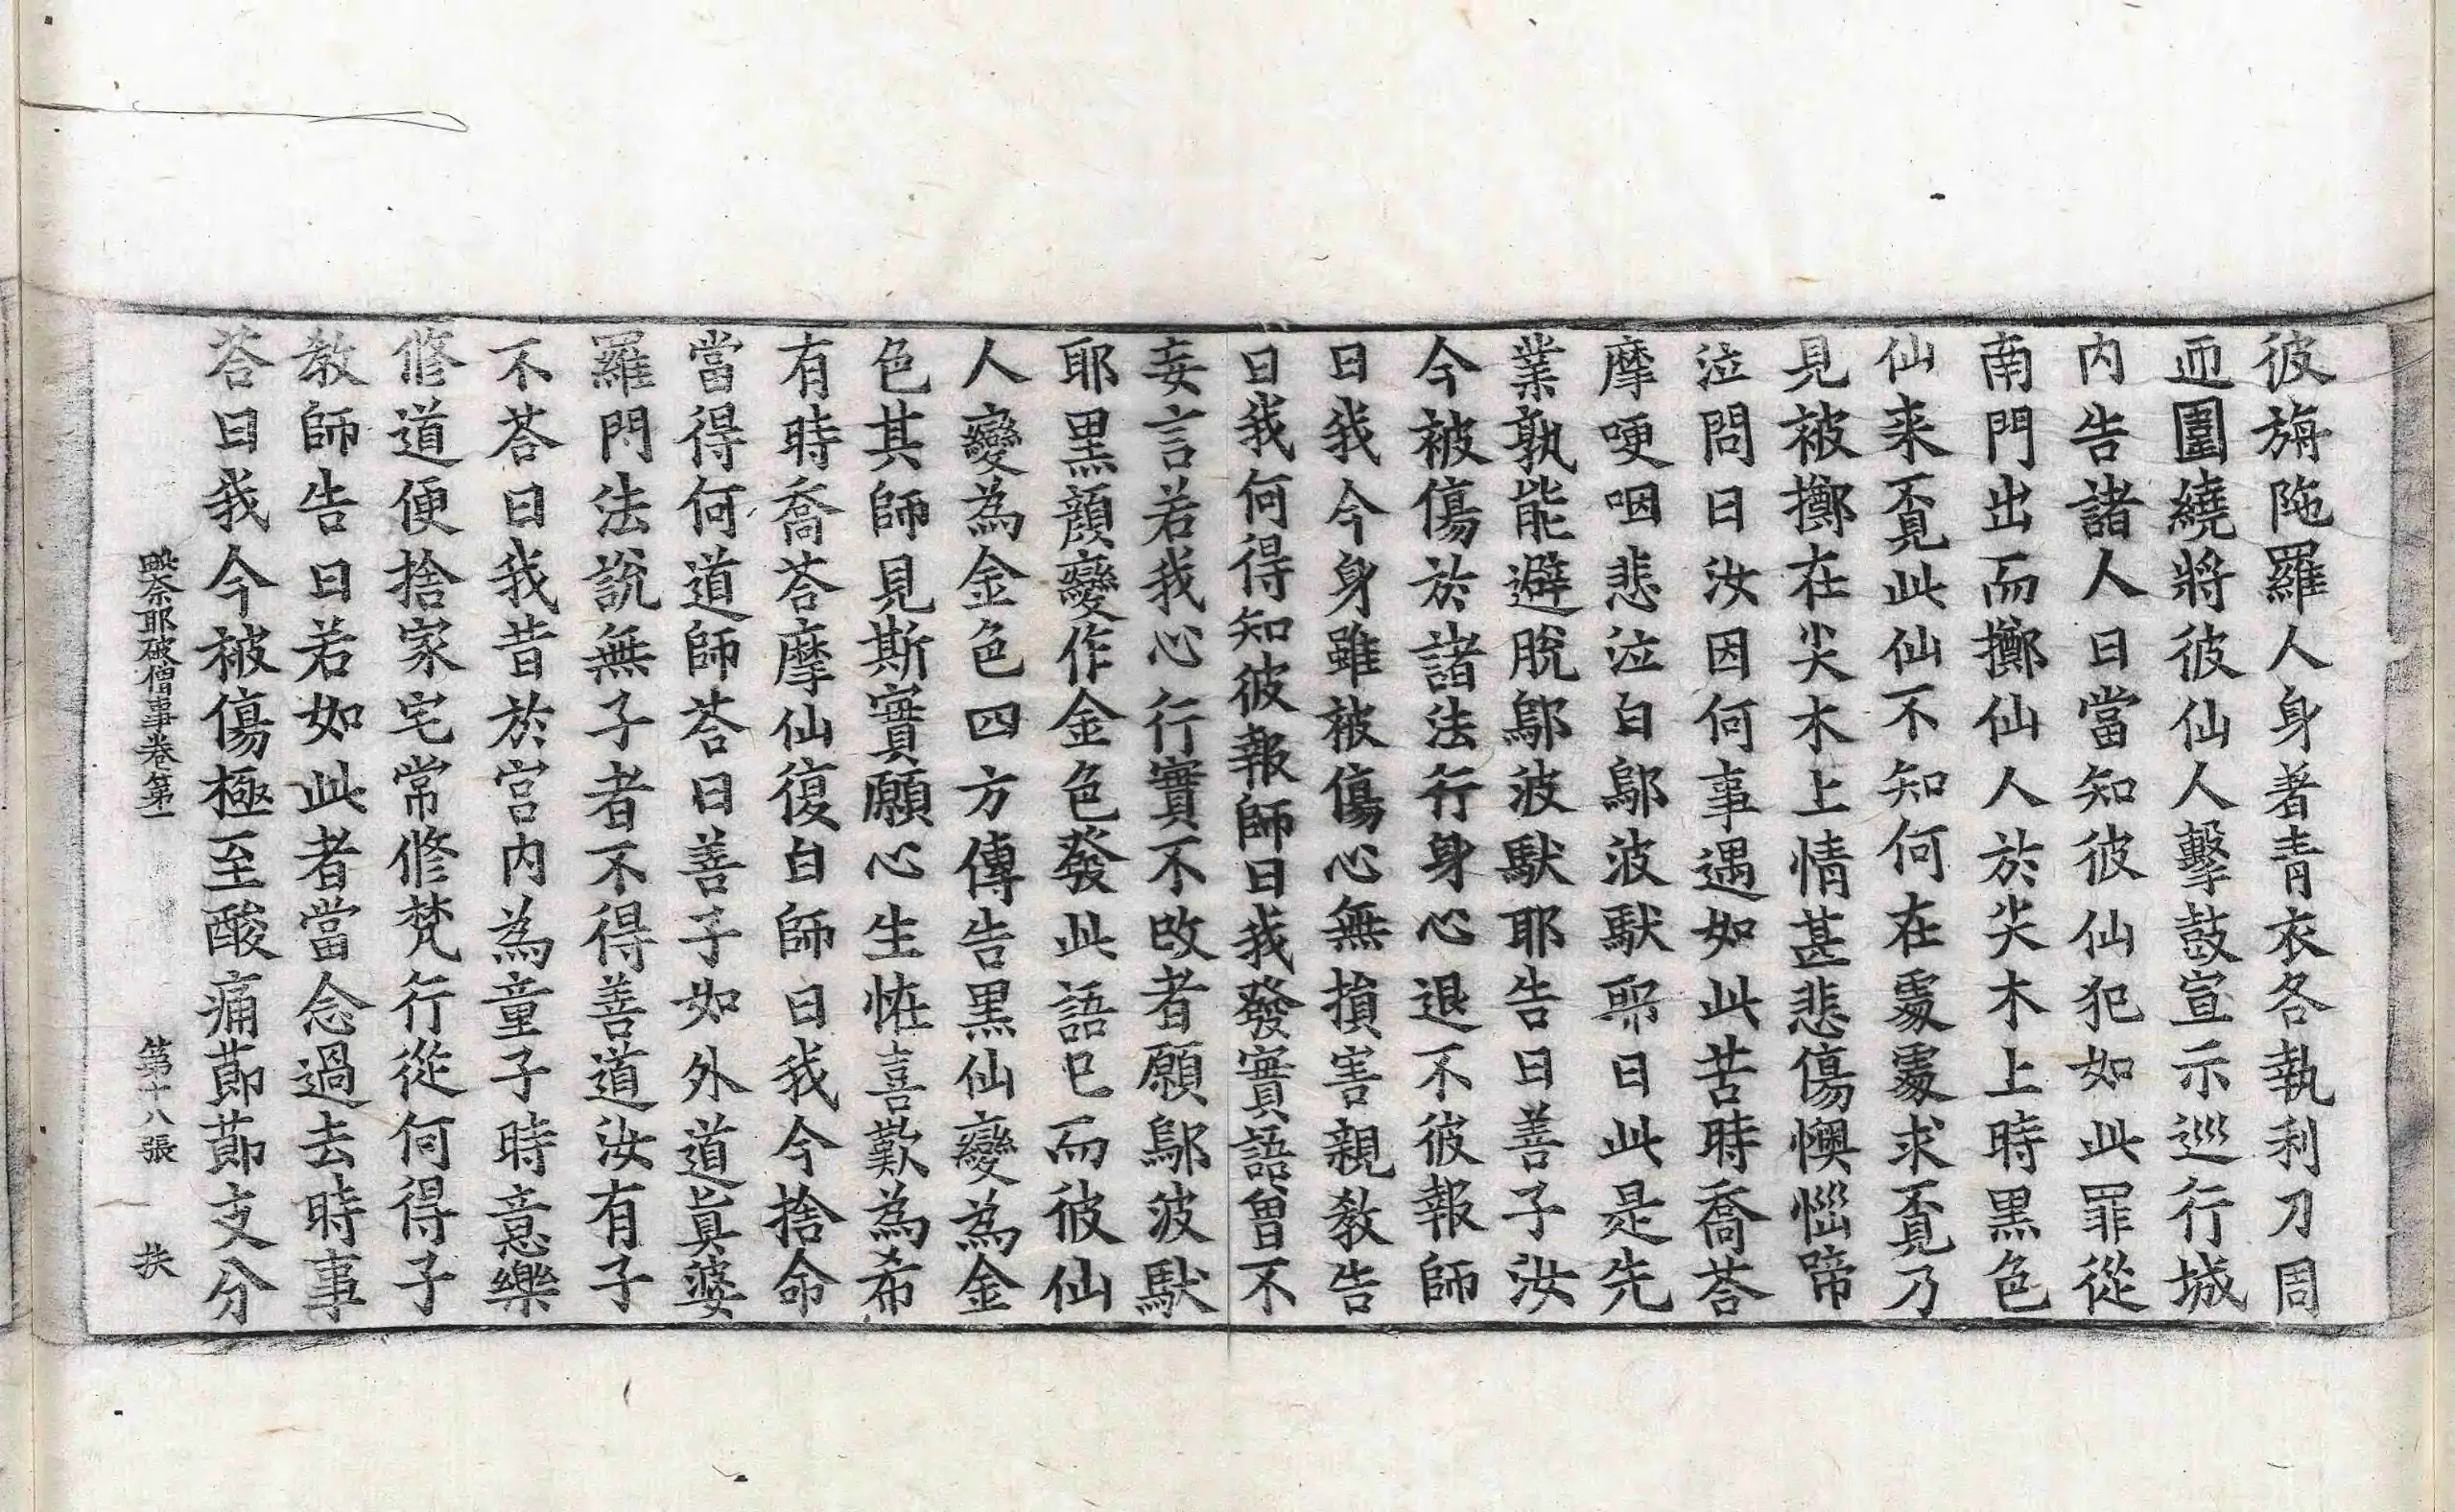 彼旃陁羅人身著青衣各執利刀周
迊圍繞將彼仙人擊鼓宣示巡行城
内告諸人曰當知彼仙犯如此罪從
南門出而擲仙人於尖木上時黒色
仙来覔此仙不知何在䖏䖏求覔乃
見被擲在尖木上情甚悲傷懊惱啼
泣問曰汝因何事遇如此苦時喬荅
摩哽咽悲泣白鄔波馱耶曰此是先
業孰能避脫鄔波馱耶告曰善子汝
今被傷於諸法行身心退不彼報師
曰我今身雖被傷心無損害親教告
曰我何得知彼報師曰我發實語曾不
妄言若我心行實不改者願鄔波馱
耶黒顔變作金色發此語已而彼仙
人變為金色四方傳告黒仙變為金
色其師見斯實願心生恠喜歎為希
有時喬荅摩仙復白師曰我今捨命
當得何道師荅曰善子如外道眞婆
羅門法說無子者不得善道汝有子
不荅曰我昔於宫内為童子時意樂
修道便捨家宅常修梵行從何得子
教師告曰若如此者當念過去時事
荅曰我今被傷極至酸痛莭莭支分
毗奈耶破僧事卷第一　第十八張　扶